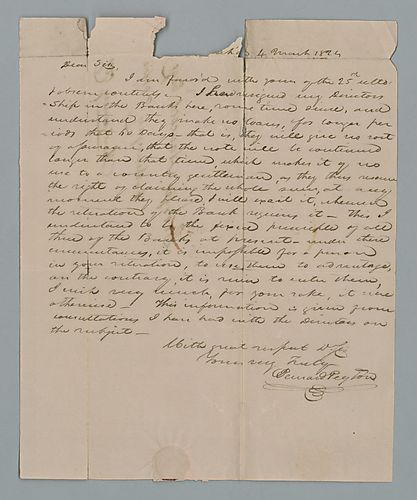 4 March 1824
Dear Sir,
I am favor'd with yours of the 25th ulto
& observe contents. I have resigned my Directors
Ship in the Bank here, some time since, and
understand they make no loans, for longer per
iods than 60 days — that is, they will give no sort
of assurance, that the note will be continued
longer than that time, which makes it of no
use to a country gentleman, as they thus reserve
the right of claiming the whole sum, at any
moment they please, & will exact it, whenever
the situation of the Bank requires it — this I
understand to be the fixed principle of all
three of the Banks, at present — under these
circumstances, it is impossible for a person
in your situation, to use them to advantage,
on the contrary, it is ruin to enter them,
I wish very much, for your sake, it were
otherwise — this information is given from
consultations I have had with the Directors on
the subject —
With great respect Dr Sir
Yours very Truly
Bernard Peyton